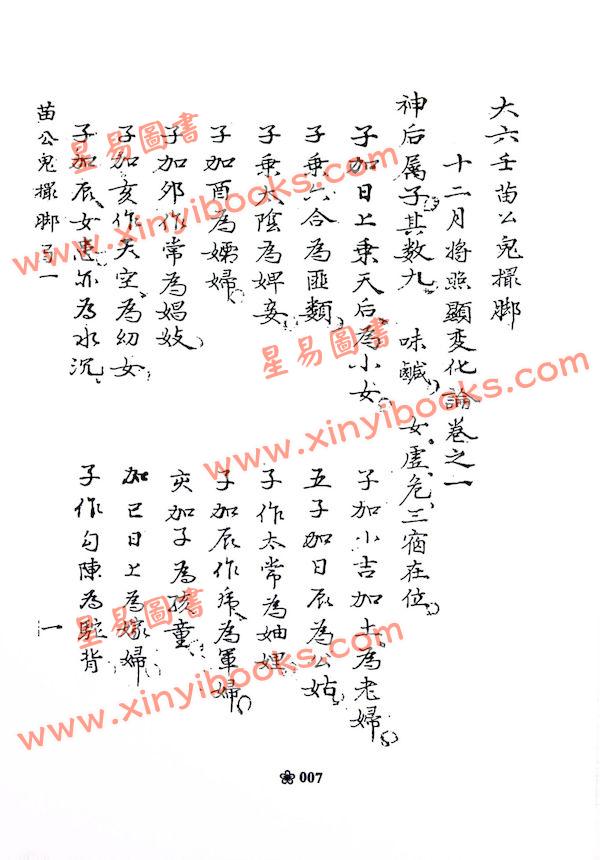 大六壬苗公鬼撮脚
十二月将照顯变化論卷之一
神后属子其数九 味鹹 女虚危三宿在位
子加日上乘天后為小女 子加小吉加土為老婦
子乘六合為匪類 五子加日辰為公姑
子乘太陰為婢妾 子作太常為妯娌
子加酉為孀婦 子加辰作為軍婦
子加夘作常為娼妓 亥加子為孩童
子加亥作天空為幼女 加巳日上為嫁婦
子加辰女患亦為水沉 子作勾陳為駝背
苗公鬼撮脚 一 一
007
星易圖書
www.xinyibooks.com
星易圖書
www.xinyibooks.com
星易圖書
www.xinyibooks.com